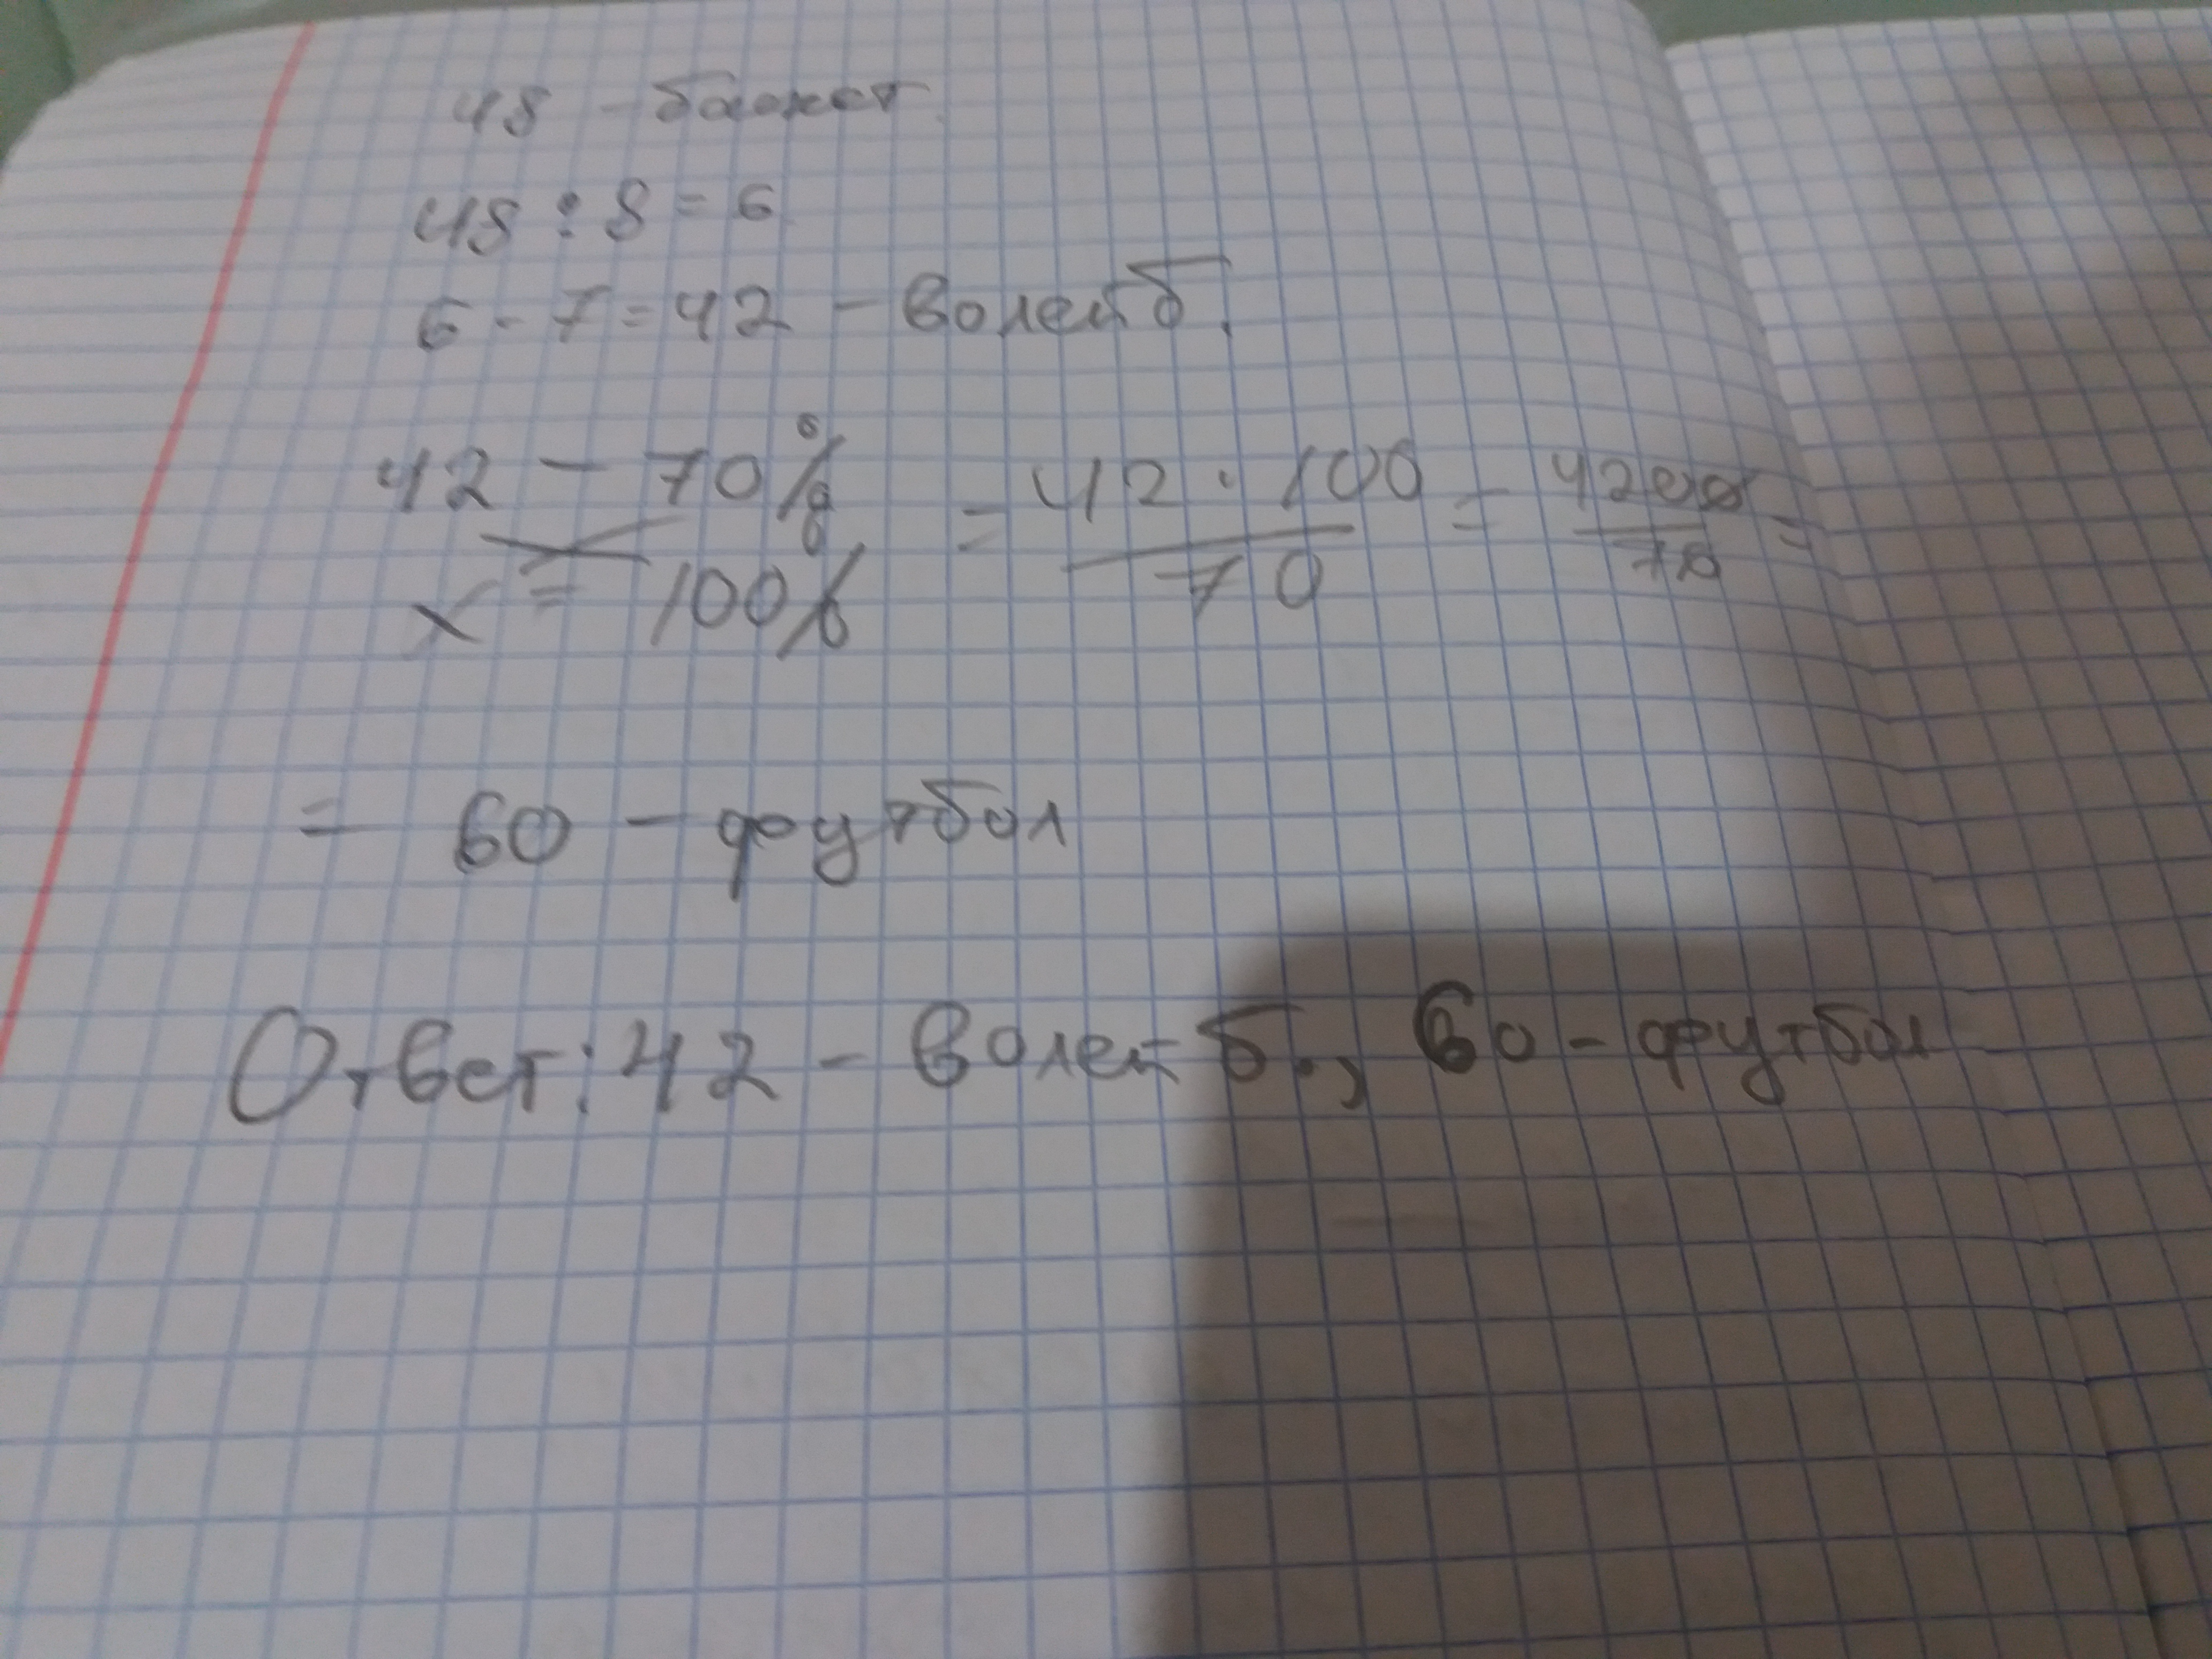 48 - баскет.
48 : 8 = 6
6 · 7 = 42 - волейб.
42 - 70% = 42 · 100 / 70 = 4200 / 70 =
x = 100%
= 60 - футбол
Ответ: 42 - волейб., 60 - футбол